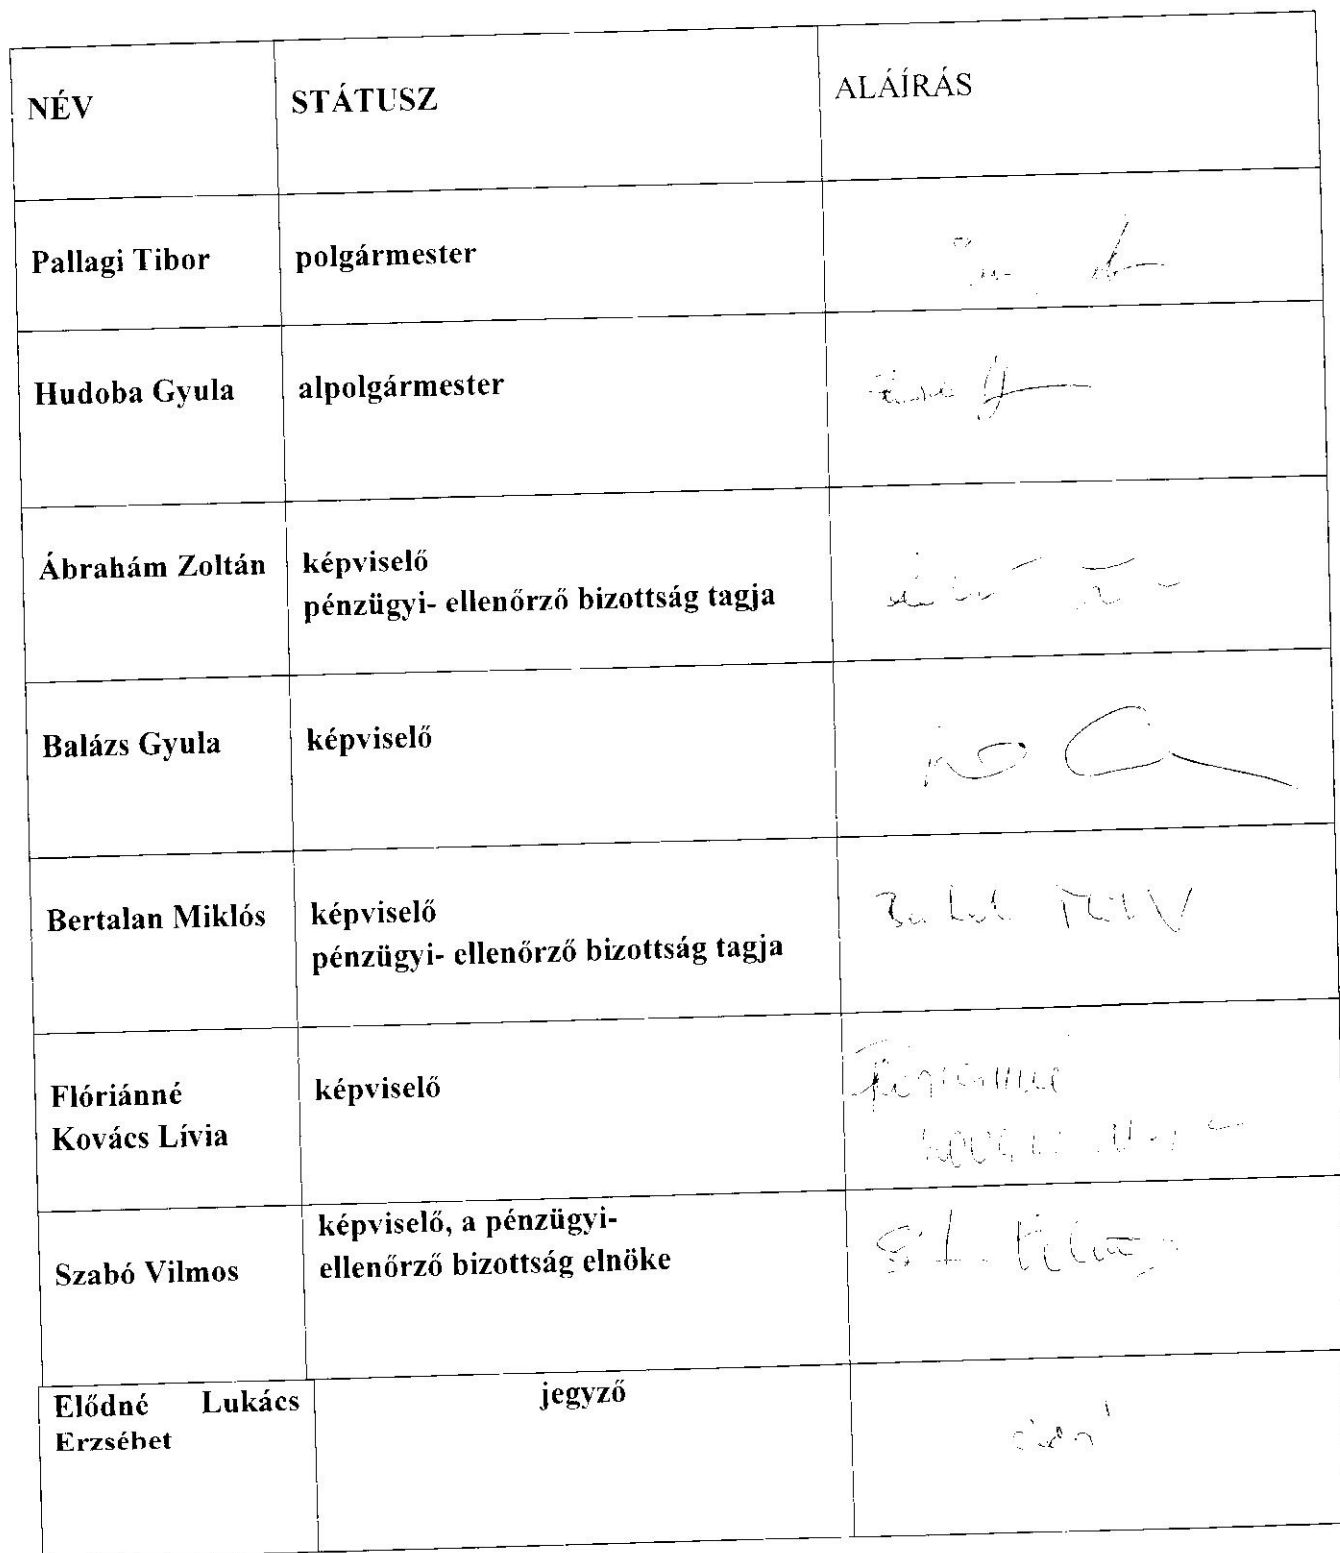 NÉV STÁTUSZ ALÁÍRÁS
Pallagi Tibor polgármester
Hudoba Gyula alpolgármester
Ábrahám Zoltán képviselő
pénzügyi- ellenőrző bizottság tagja
Balázs Gyula képviselő
Bertalan Miklós képviselő
pénzügyi- ellenőrző bizottság tagja
Flóriánné képviselő
Kovács Lívia
képviselő, a pénzügyi-
Szabó Vilmos ellenőrző bizottság elnöke
Elődné Lukács jegyző
Erzsébet